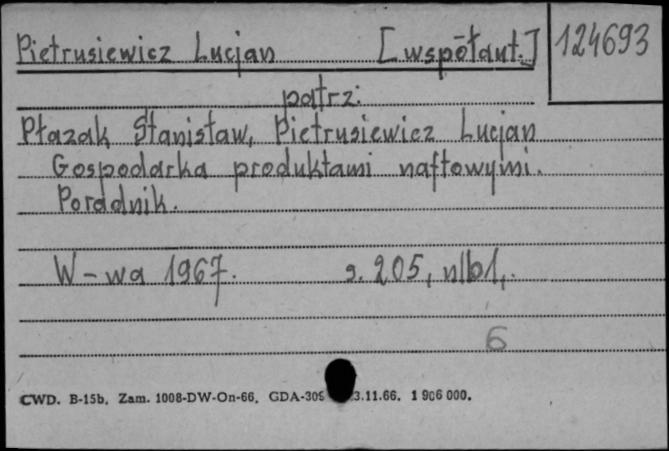 Pietrusiewicz Lucjan [współaut.] 124693
patrz:
Płazak Stanisław, Pietrusiewicz Lucjan
Gospodarka produktami naftowymi.
Poradnik.
W-wa 1967. s. 205, nlb1,.
6
CWD. B-15b. Zam. 1008-DW-On-66. GDA-309 3.11.66. 1 906 000.